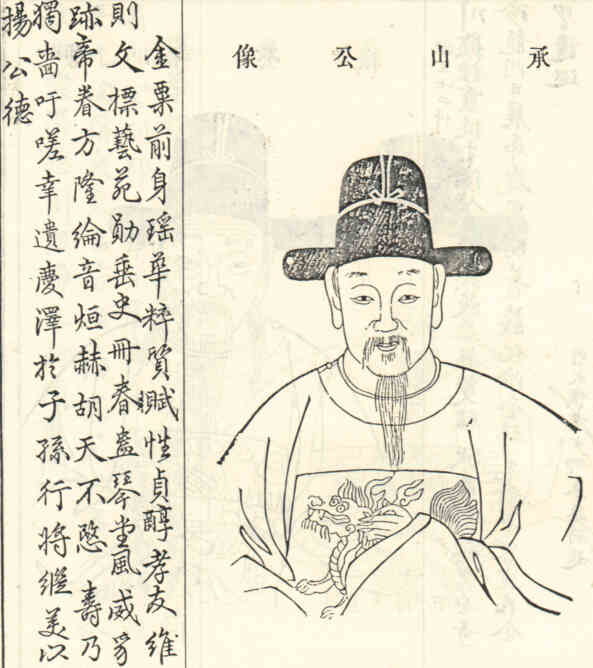 承山公像
金粟前身瑶華粹質賦性貞醇孝友維
則文標藝苑勛垂史冊春盎琴堂風威豸
跡帝眷方隆綸音烜赫胡天不愍壽乃
獨嗇吁嗟幸遺慶澤於子孫行將繼美以
揚公德